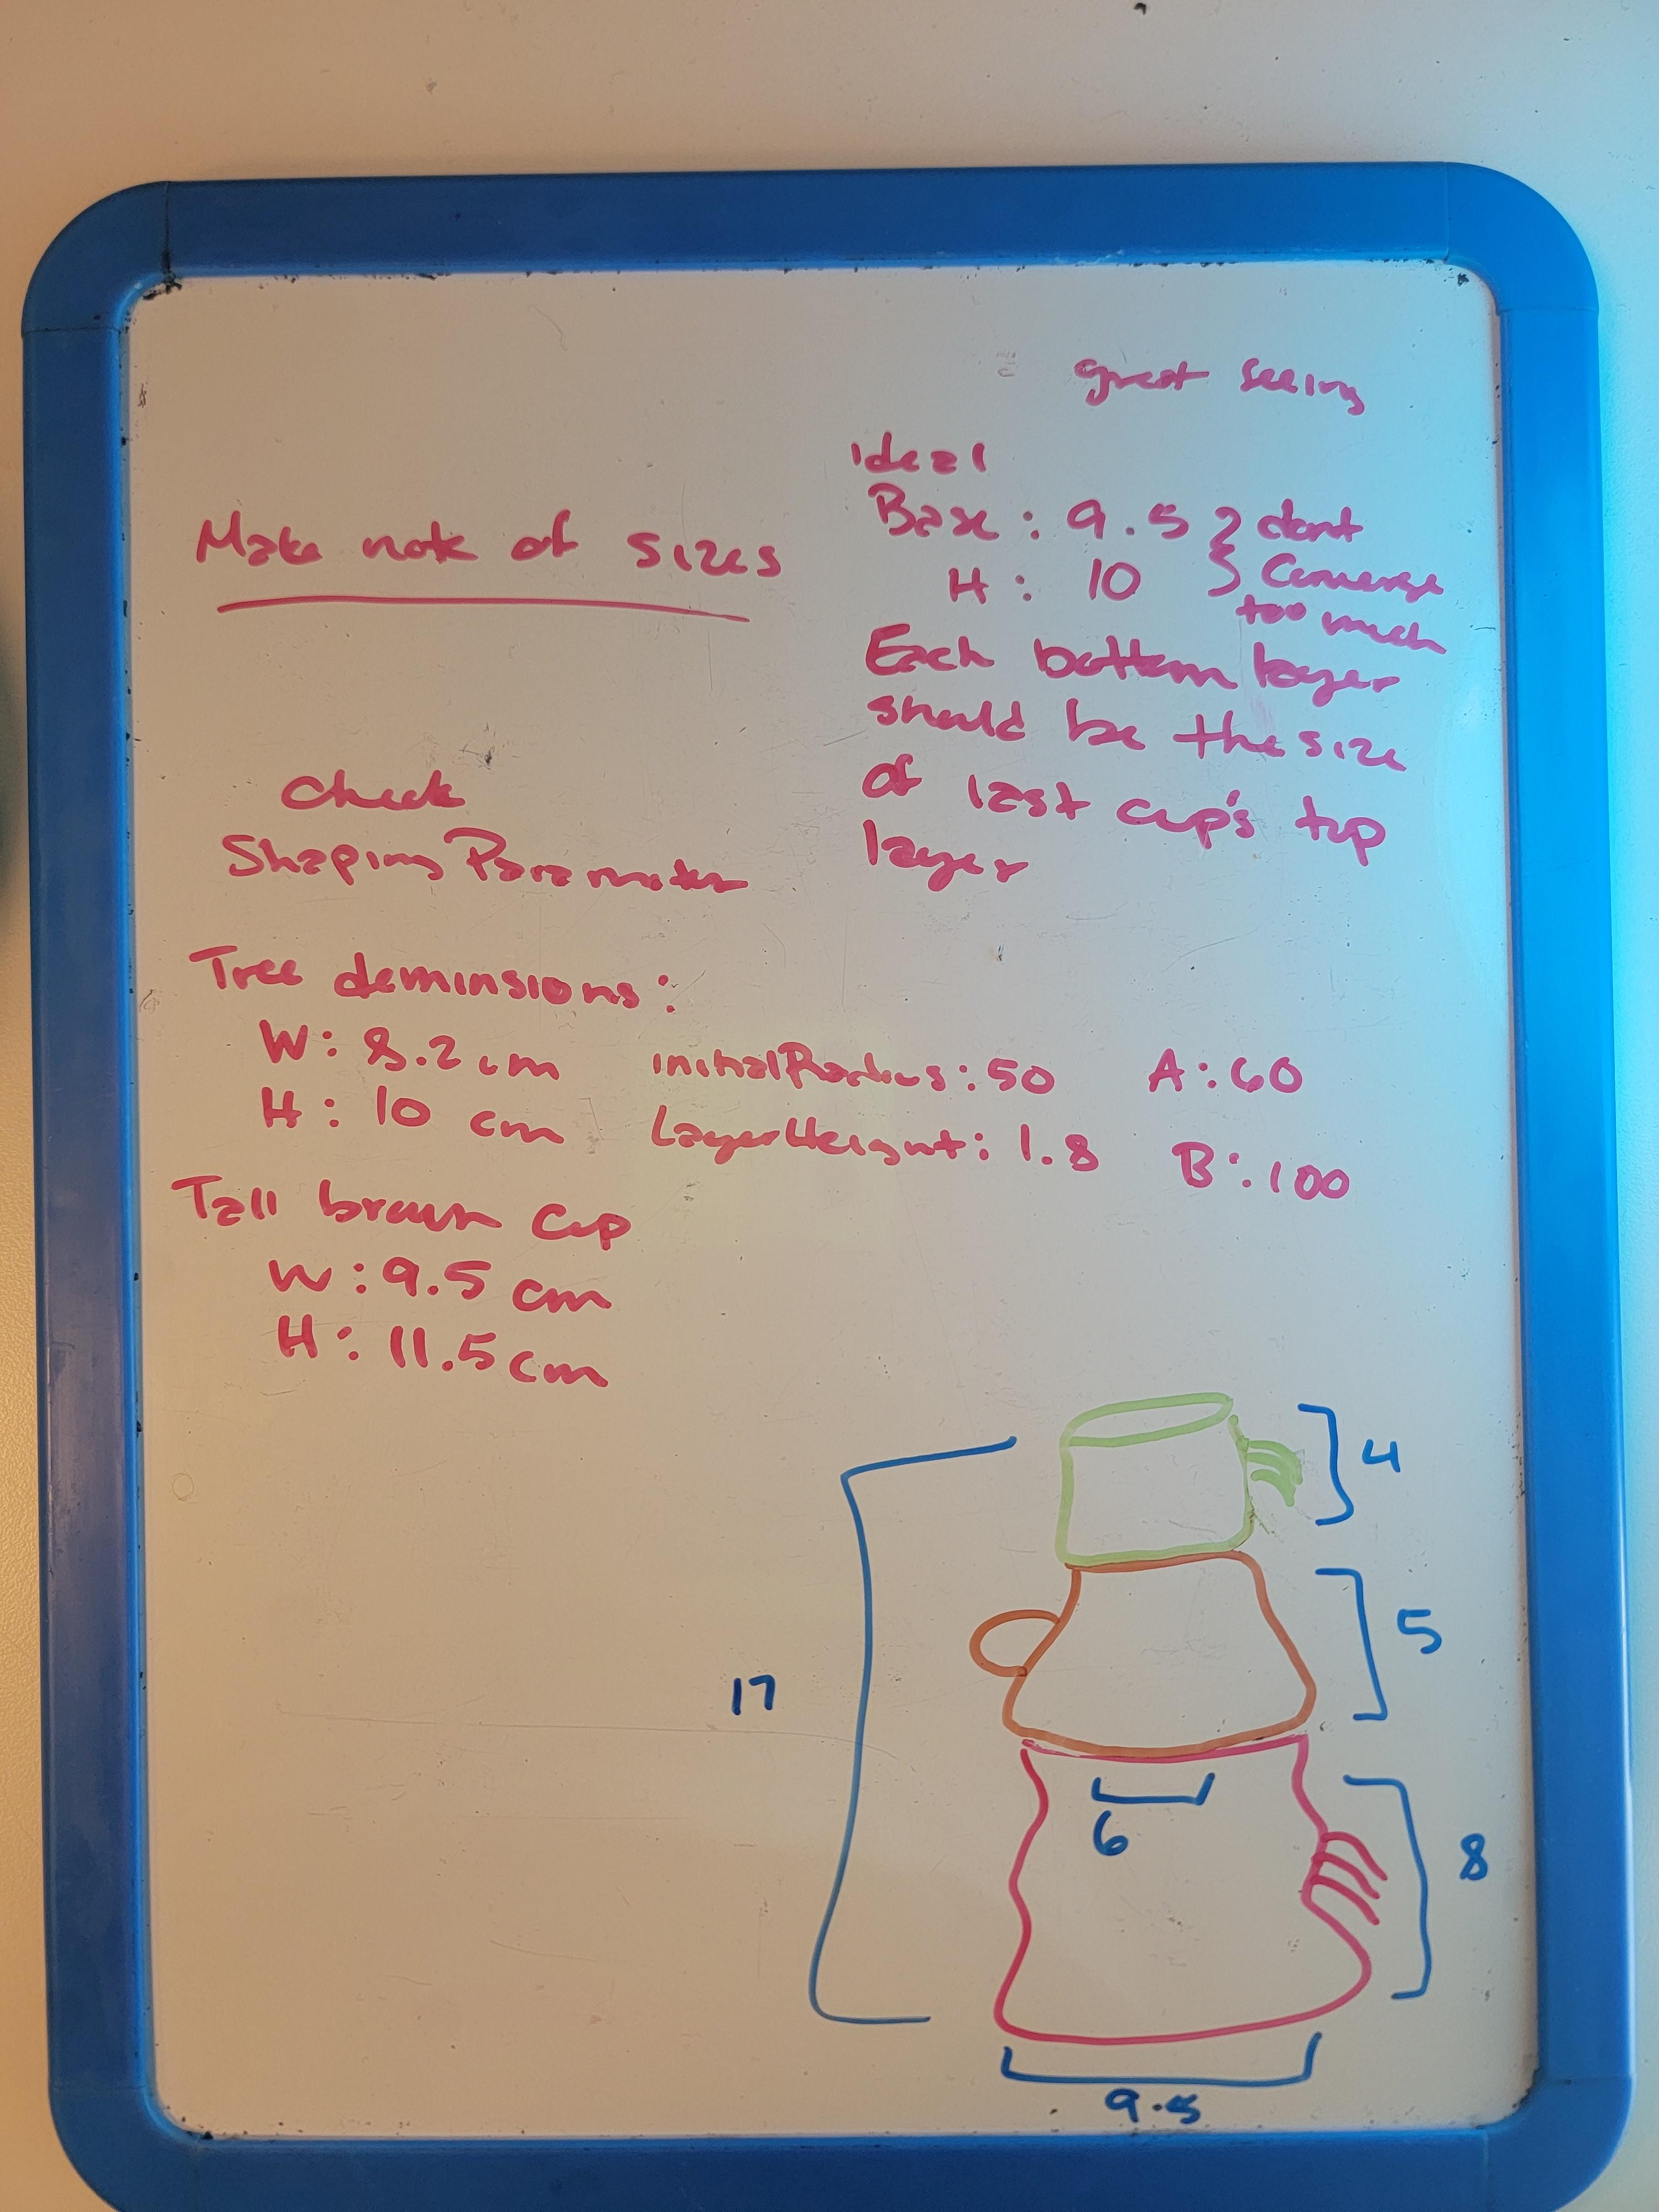 great seeing
Make note of sizes
ideal
Base: 9.5 } dont
H: 10 } Converge
too much
Each bottom layer
should be the size
of last cup's top
layer
check
Shaping Parameter
Tree deminsions:
W: 8.2 cm initialRadius: 50 A: 60
H: 10 cm LayerHeight: 1.8 B: 100
Tall brown cup
W: 9.5 cm
H: 11.5 cm
4
5
17
6
8
9.5